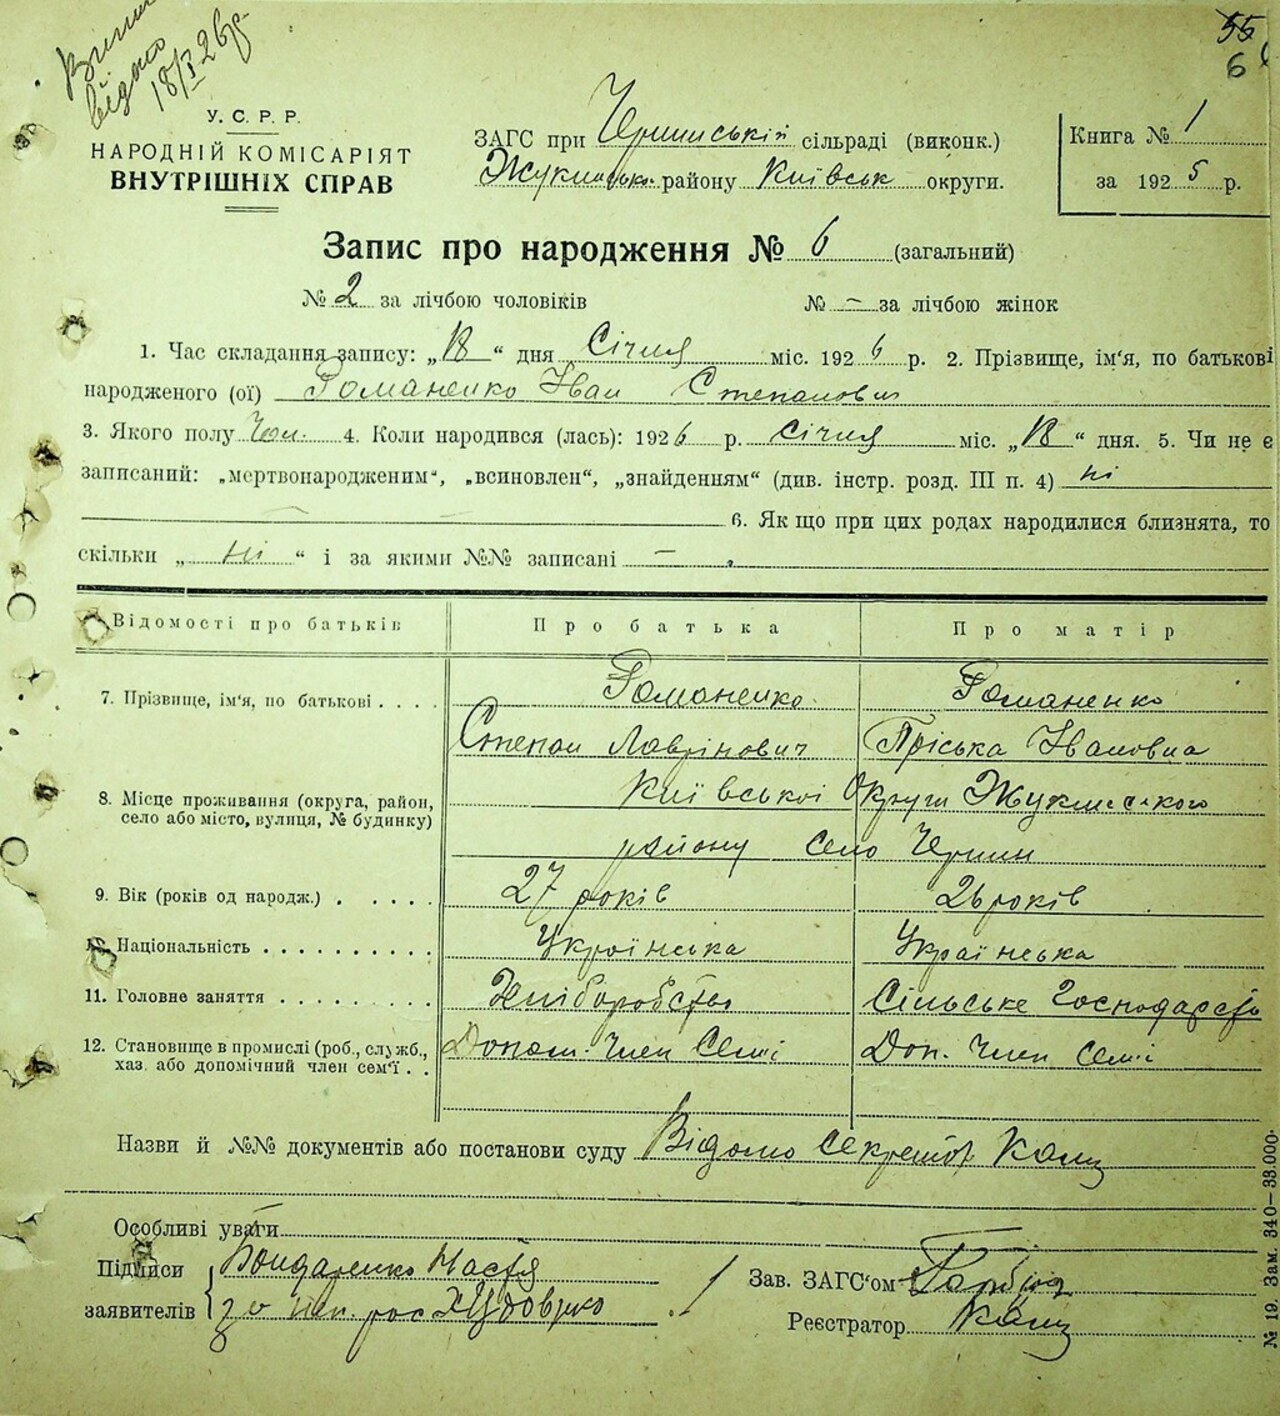 55
6
відано
18/I 26р.
У. С. Р. Р.
НАРОДНІЙ КОМІСАРІЯТ
ВНУТРІШНІХ СПРАВ
ЗАГС при Чернинській сільраді (виконк.)
району Київськ округи.
Книга № 1
за 1925 р.
Запис про народження № 6 (загальний)
№ 2 за лічбою чоловіків № — за лічбою жінок
1. Час складання запису: „18“ дня Січня міс. 1926 р. 2. Прізвище, ім'я, по батькові
народженого (ої) Романенко Іван Степанович
3. Якого полу Чол. 4. Коли народився (лась): 1926 р. січня міс. „18“ дня. 5. Чи не є
записаний: „мертвонародженим“, „всиновлен“, „знайденням“ (див. інстр. розд. III п. 4) ні
6. Як що при цих родах народилися близнята, то
скільки „ні“ і за якими №№ записані —
Відомості про батьків Про батька Про матір
7. Прізвище, ім'я, по батькові . . . . Романенко Романенко
Степан Лаврінович Пріська Івановна
8. Місце проживання (округа, район, село або місто, вулиця, № будинку) Київської Округи
району село Чернин
9. Вік (років од народж.) . . . . . 27 років 26 років
10. Національність . . . . . . . . . . Українська Українська
11. Головне заняття . . . . . . . . . Хліборобство Сільське Господарство
12. Становище в промислі (роб., служб., хаз. або допомічний член сем'ї . . Допом. Член Семї Доп. Член Семї
Назви й №№ документів або постанови суду Відомо Секретар
Особливі уваги
Підписи Бондаренко Настя
заявителів
Зав. ЗАГС'ом
Реєстратор
№ 19. Зам. 340—38.000.